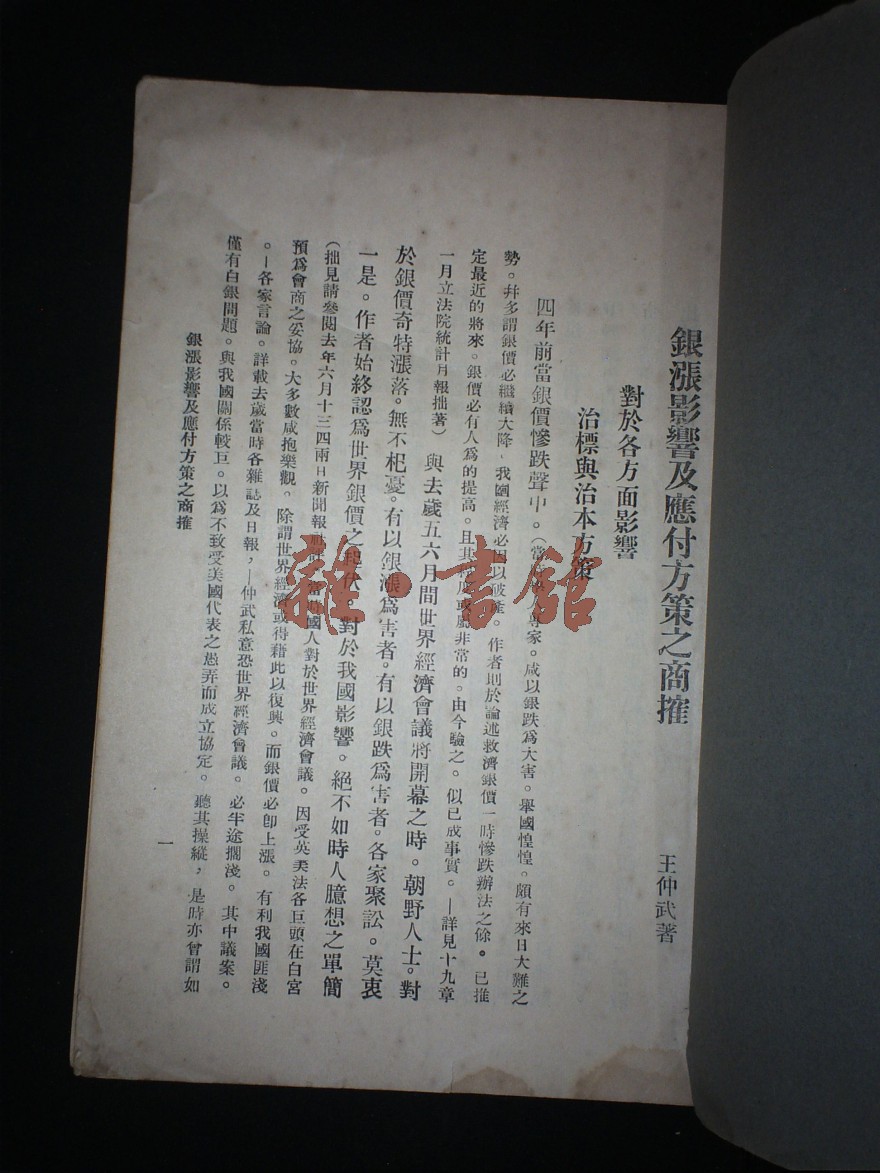 銀漲影響及應付方策之商搉
王仲武著
對於各方面影響
治標與治本方策
四年前當銀價慘跌聲中。(當專家。咸以銀跌爲大害。舉國惶惶。頗有來日大難之
勢。幷多謂銀價必繼續大降、我國經濟必因以破產。作者則於論述救濟銀價一時慘跌辦法之餘。已推
定最近的將來。銀價必有人爲的提高。且其或屬非常的。由今驗之。似已成事實。—詳見十九章
一月立法院統計月報拙著)與去歲五六月間世界經濟會議將開幕之時。朝野人士。對
於銀價奇特漲落。無不杞憂。有以銀漲爲害者。有以銀跌爲害者。各家聚訟。莫衷
一是。作者始終認爲世界銀價之起伏。對於我國影響。絕不如時人臆想之單簡
(拙見請參閱去年六月十三四兩日新聞報國人對於世界經濟會議。因受英美法各巨頭在白宮
預爲會商之妥協。大多數咸抱樂觀。除謂世界經濟或得藉此以復興。而銀價必卽上漲。有利我國匪淺
。—各家言論。詳載去歲當時各雜誌及日報,—仲武私意恐世界經濟會議。必半途擱淺。其中議案。
僅有白銀問題。與我國關係較巨。以爲不致受美國代表之愚弄而成立協定。聽其操縱,是時亦曾謂如
銀漲影響及應付方策之商搉
一
雜·書館